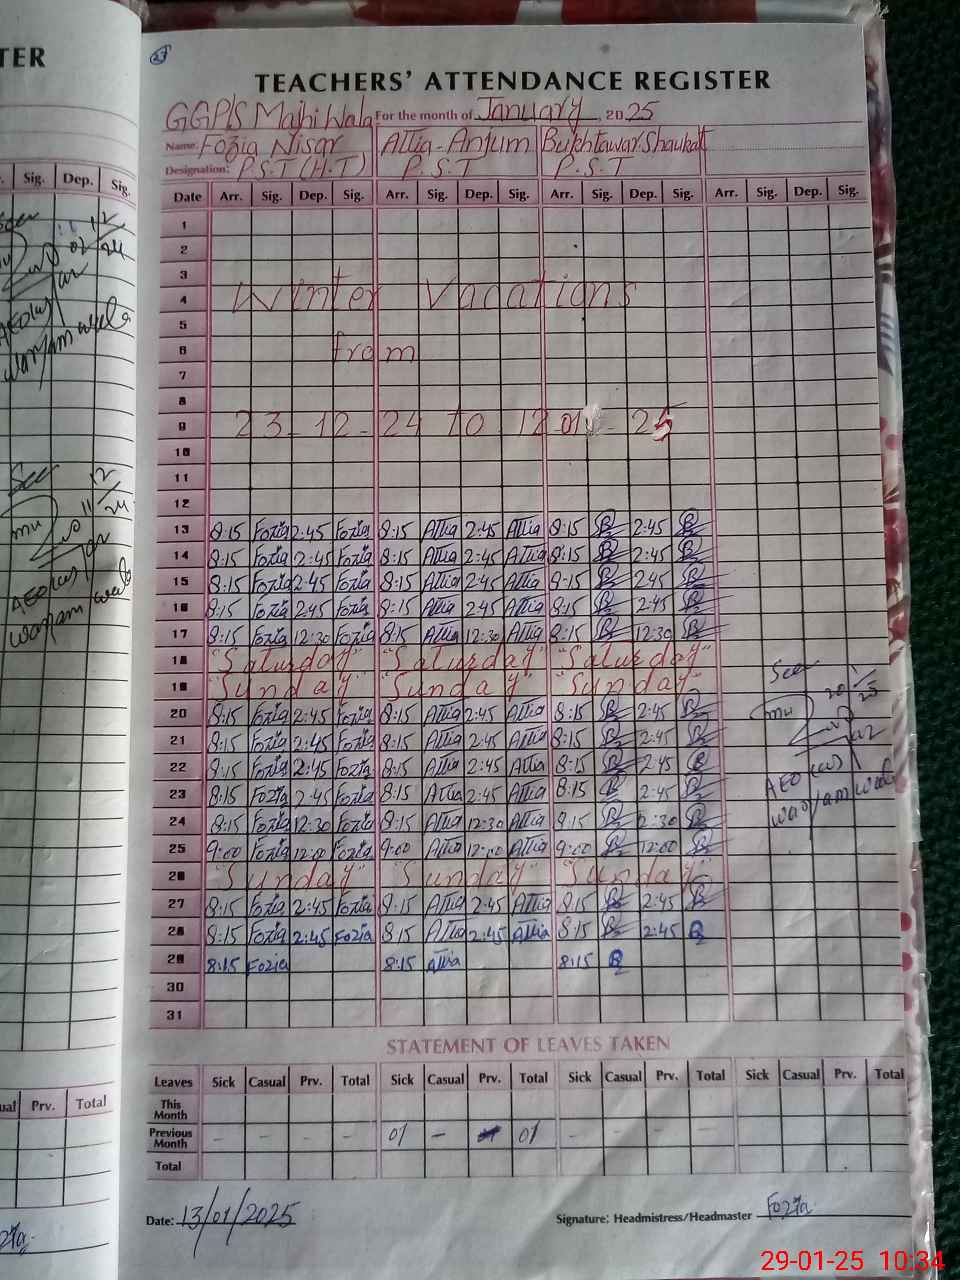 27
TER
TEACHERS' ATTENDANCE REGISTER
GGP/S Majhi Wala For the month of January, 2025
Name: Fozia Nisar Attia-Anjum Bukhtawar Shaukat
Designation: P.S.T (H.T) P.S.T P.S.T
Sig. Dep. Sig.
Date Arr. Sig. Dep. Sig. Arr. Sig. Dep. Sig. Arr. Sig. Dep. Sig. Arr. Sig. Dep. Sig.
1
2
3
4 Winter Vacations
5
6 from
7
8
9 23-12-24 to 12-01-25
10
11
12
13 8:15 Fozia 2:45 Fozia 8:15 Attia 2:45 Attia 8:15 2:45
14 8:15 Fozia 2:45 Fozia 8:15 Attia 2:45 Attia 8:15 2:45
15 8:15 Fozia 2:45 Fozia 8:15 Attia 2:45 Attia 8:15 2:45
16 8:15 Fozia 2:45 Fozia 8:15 Attia 2:45 Attia 8:15 2:45
17 8:15 Fozia 12:30 Fozia 8:15 Attia 12:30 Attia 8:15 12:30
18 "Saturday" "Saturday" "Saturday"
19 "Sunday" "Sunday" "Sunday"
20 8:15 Fozia 2:45 Fozia 8:15 Attia 2:45 Attia 8:15 2:45
21 8:15 Fozia 2:45 Fozia 8:15 Attia 2:45 Attia 8:15 2:45
22 8:15 Fozia 2:45 Fozia 8:15 Attia 2:45 Attia 8:15 2:45
23 8:15 Fozia 2:45 Fozia 8:15 Attia 2:45 Attia 8:15 2:45
24 8:15 Fozia 12:30 Fozia 8:15 Attia 12:30 Attia 8:15 2:30
25 9:00 Fozia 12:00 Fozia 9:00 Attia 12:00 Attia 9:00 12:00
26 "Sunday" "Sunday" "Sunday"
27 8:15 Fozia 2:45 Fozia 8:15 Attia 2:45 Attia 8:15 2:45
28 8:15 Fozia 2:45 Fozia 8:15 Attia 2:45 Attia 8:15 2:45
29 8:15 Fozia 8:15 Attia 8:15
30
31
See
20/1/25
AEO
STATEMENT OF LEAVES TAKEN
Leaves Sick Casual Prv. Total Sick Casual Prv. Total Sick Casual Prv. Total Sick Casual Prv. Total
This Month
Previous Month - - - - 01 - 01 - - - -
Total
ual Prv. Total
Date: 13/01/2025 Signature: Headmistress/Headmaster Fozia
29-01-25 10:34